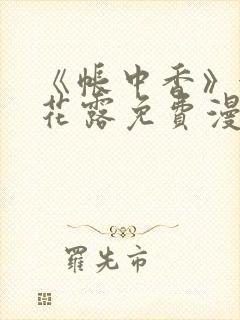 《帐中香》
花露免费漫
罗先市